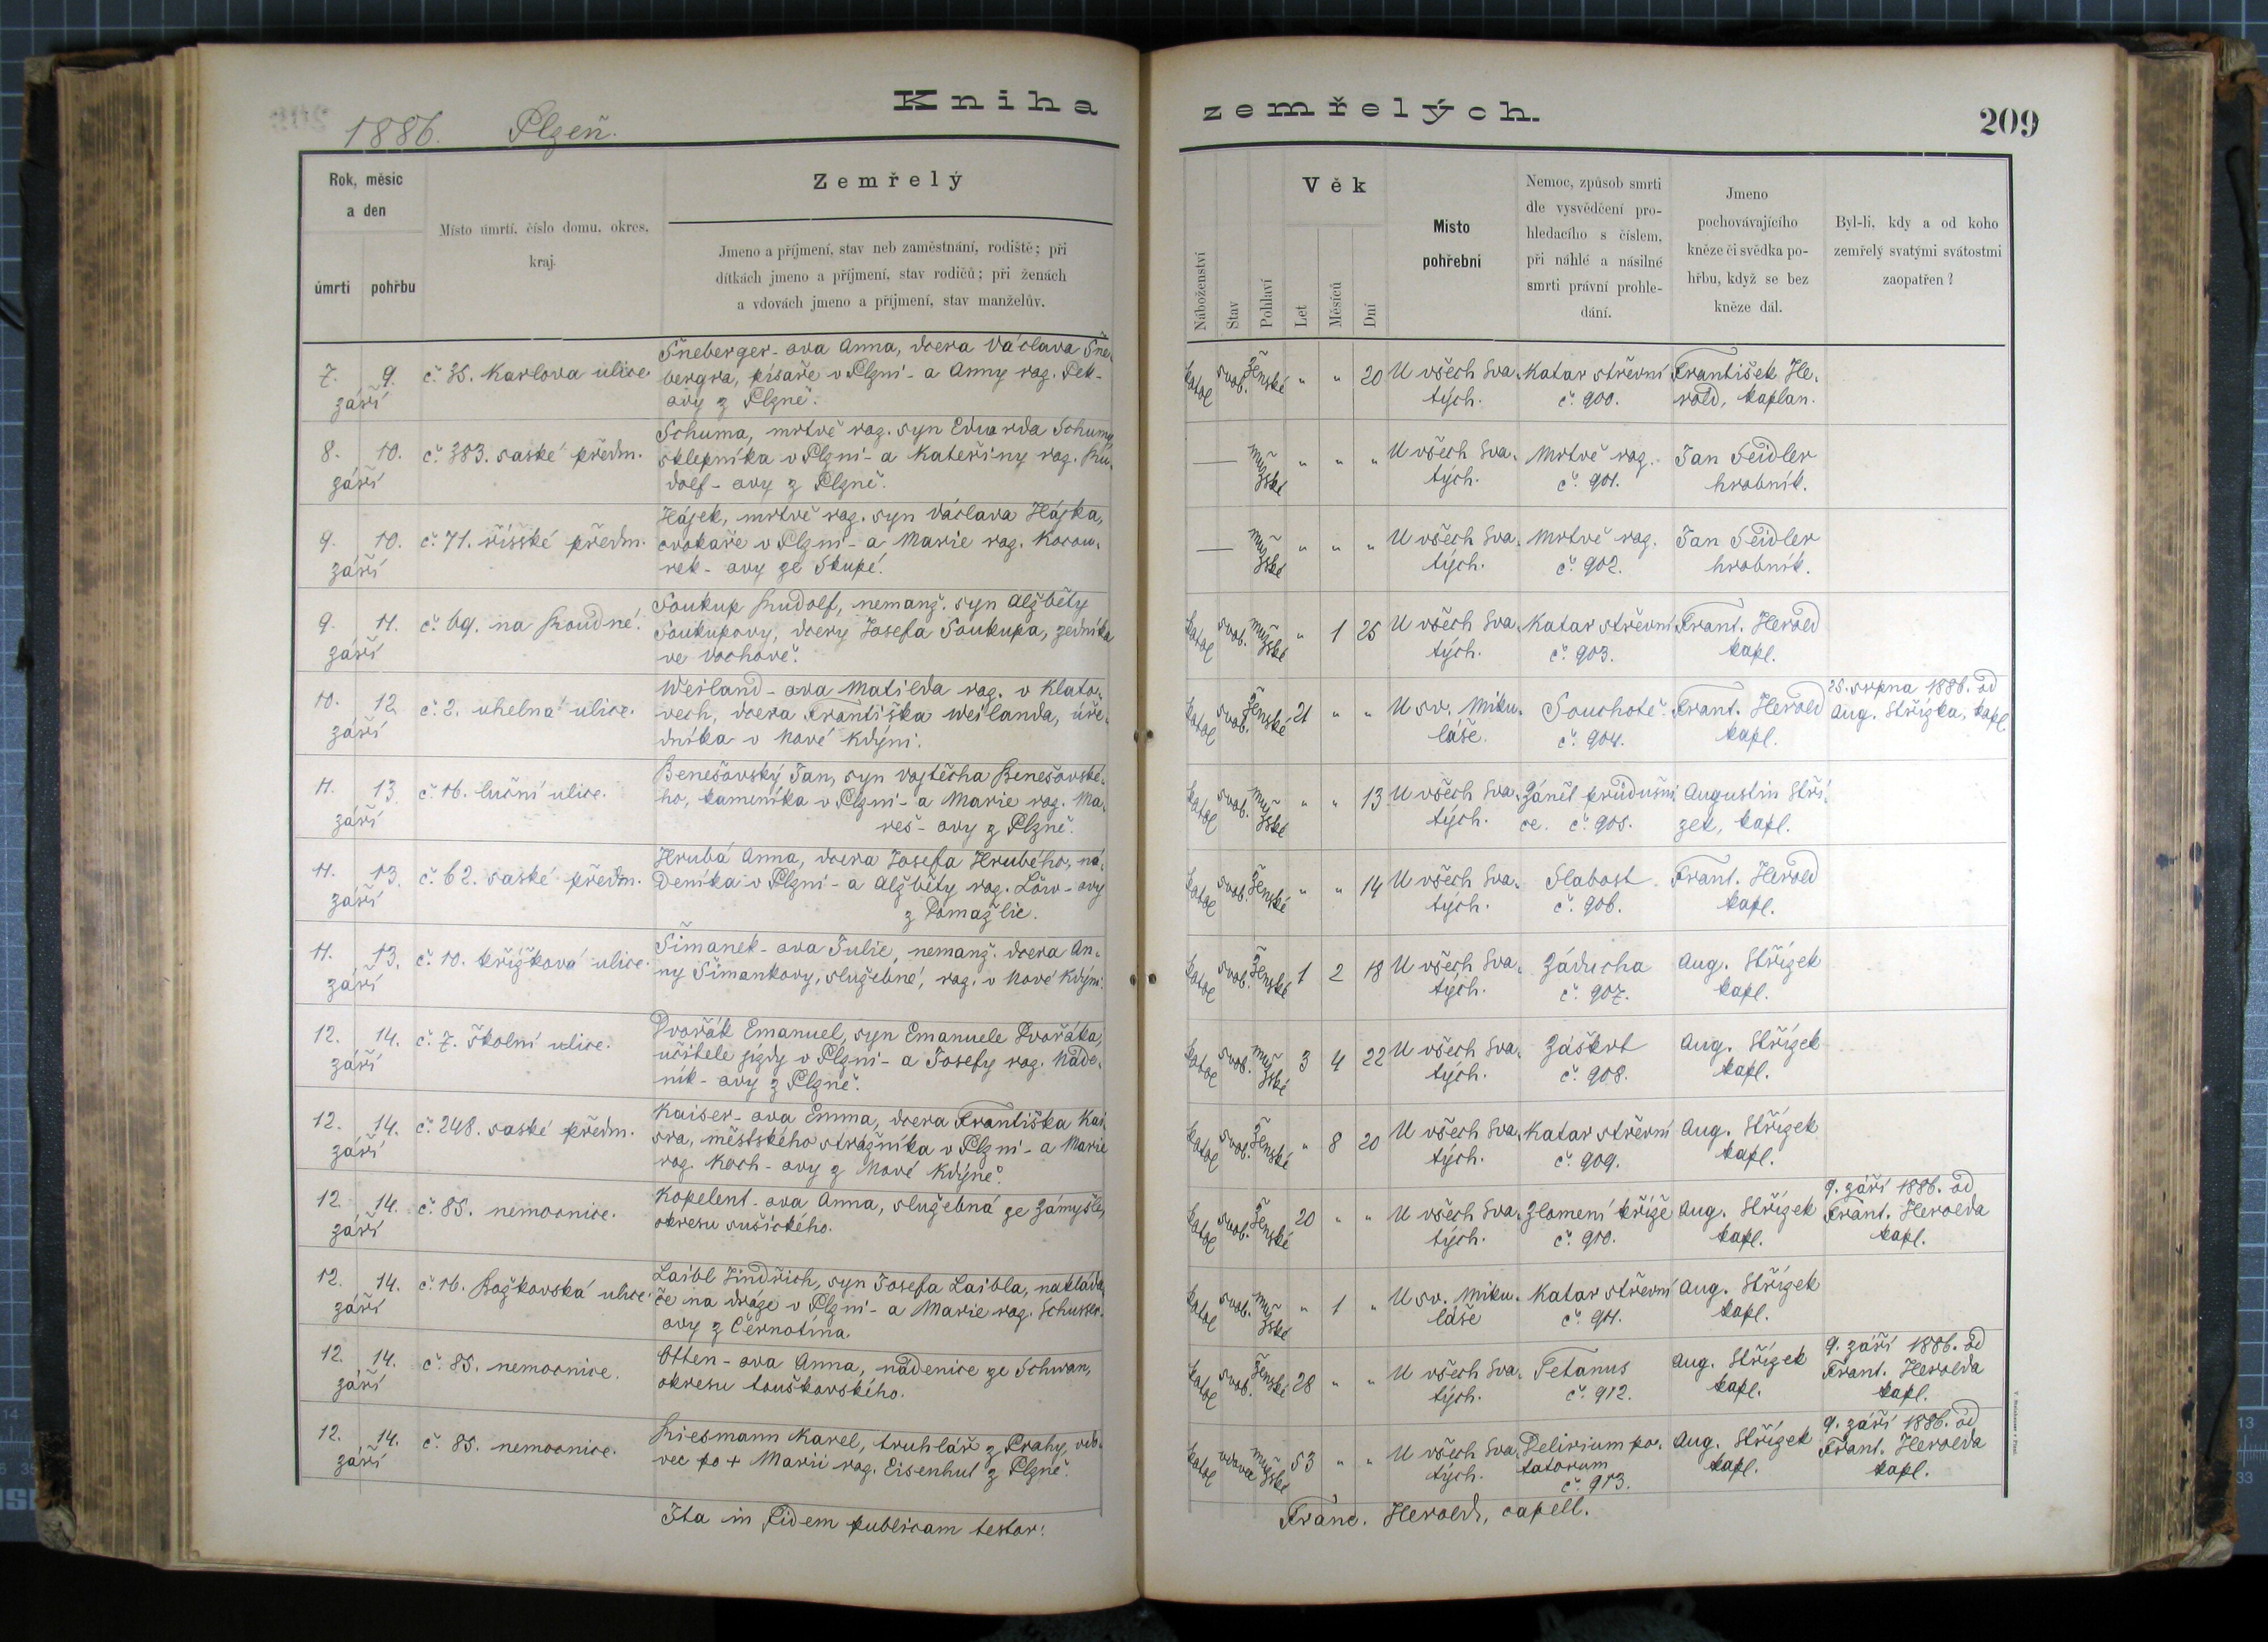 Kniha zemřelých.
209
1886. Plzeň.
Rok, měsíc
a den
úmrtí
pohřbu
Místo úmrtí, číslo domu, okres,
kraj.
Zemřelý
Jmeno a příjmení, stav neb zaměstnání, rodiště; při
dítkách jmeno a příjmení, stav rodičů; při ženách
a vdovách jmeno a příjmení, stav manželův.
Náboženství
Stav
Pohlaví
Věk
Let
Měsíců
Dní
Místo
pohřební
Nemoc, způsob smrti
dle vysvědčení pro-
hledacího s číslem,
při náhlé a násilné
smrti právní prohle-
dání.
Jmeno
pochovávajícího
kněze či svědka po-
hřbu, když se bez
kněze dál.
Byl-li, kdy a od koho
zemřelý svatými svátostmi
zaopatřen?
7. 9.
září
č. 35. Karlova ulice.
Šneberger-ova Anna, dcera Václava Šne-
bergra, písaře v Plzni - a Anny roz. Pek-
ovy z Plzně.
katol svob. ženské " " 20
U všech Sva-
tých.
Katar střevní
č. 900.
František He-
rold, kaplan.
8. 10.
září
č. 383. saské předm.
Schuma, mrtvě roz. syn Eduarda Schumy
sklepníka v Plzni - a Kateřiny roz. Ru-
dolf-ovy z Plzně.
— mužské " " "
U všech Sva-
tých.
Mrtvě roz.
č. 901.
Jan Seidler
hrobník.
9. 10.
září
č. 71. říšské předm.
Hájek, mrtvě roz. syn Václava Hájka,
cvokaře v Plzni - a Marie roz. Kocou-
rek-ovy ze Skupé.
— mužské " " "
U všech Sva-
tých.
Mrtvě roz.
č. 902.
Jan Seidler
hrobník.
9. 11.
září
č. 69. na Roudné.
Soukup Rudolf, nemanž. syn Alžběty
Soukupovy, dcery Josefa Soukupa, zedníka
ve Vochově.
katol svob. mužské " 1 25
U všech Sva-
tých.
Katar střevní
č. 903.
Frant. Herold
kapl.
10. 12
září
č. 2. uhelná ulice.
Weiland-ova Matilda roz. v Klato-
vech, dcera Františka Weilanda, úře-
dníka v Nové Kdýni.
katol svob. ženské 21 " "
U sv. Miku-
láše.
Souchotě.
č. 904.
Frant. Herold
kapl.
25. srpna 1886. od
Aug. Střízka, kapl
11. 13.
září
č. 16. luční ulice.
Benešovský Jan, syn Vojtěcha Benešovské-
ho, kameníka v Plzni - a Marie roz. Ma-
reš-ovy z Plzně.
katol svob. mužské " " 13
U všech Sva-
tých.
Zánět průdušni-
ce. č. 905.
Augustin Stří-
zek, kapl.
11. 13.
září
č. 62. saské předm.
Hrubá Anna, dcera Josefa Hrubého, ná-
deníka v Plzni - a Alžběty roz. Löw-ovy
z Domažlic.
katol svob. ženské " " 14
U všech Sva-
tých.
Slabost.
č. 906.
Frant. Herold
kapl.
11. 13.
září
č. 10. křížková ulice.
Šimanek-ova Julie, nemanž. dcera An-
ny Šimankovy, služebné, roz. v Nové Kdýni.
katol svob. ženské 1 2 18
U všech Sva-
tých.
Záducha
č. 907.
Aug. Střízek
kapl.
12. 14.
září
č. 7. školní ulice.
Dvořák Emanuel, syn Emanuele Dvořáka,
učitele jízdy v Plzni - a Josefy roz. Náde-
ník-ovy z Plzně.
katol svob. mužské 3 4 22
U všech Sva-
tých.
Záškrt
č. 908.
Aug. Střízek
kapl.
12. 14.
září
č. 248. saské předm.
Kaiser-ova Emma, dcera Františka Kai-
sra, městského strážníka v Plzni - a Marie
roz. Koch-ovy z Nové Kdýně.
katol svob. ženské " 8 20
U všech Sva-
tých.
Katar střevní
č. 909.
Aug. Střízek
kapl.
12. 14.
září
č. 85. nemocnice.
Kopelent-ova Anna, služebná ze Zámyšle,
okresu sušického.
katol svob. ženské 20 " "
U všech Sva-
tých.
Zlomení kříže
č. 910.
Aug. Střízek
kapl.
9. září 1886. od
Frant. Herolda
kapl.
12. 14.
září
č. 16. Božkovská ulice
Laibl Jindřich, syn Josefa Laibla, nakláda-
če na dráze v Plzni - a Marie roz.
ovy z Černotína.
katol svob. mužské " 1 "
U sv. Miku-
láše
Katar střevní
č. 911.
Aug. Střízek
kapl.
12. 14.
září
č. 85. nemocnice.
Otten-ova Anna, nádenice ze Schwan,
okresu touškovského.
katol svob. ženské 28 " "
U všech Sva-
tých.
Tetanus
č. 912.
Aug. Střízek
kapl.
9. září 1886. od
Frant. Herolda
kapl.
12. 14.
září
č. 85. nemocnice.
Riesmann Karel, truhlář z Prahy, vdo-
vec po + Marii roz. Eisenhut z Plzně.
katol vdovec mužské 53 " "
U všech Sva-
tých.
Delirium po-
tatorum
č. 913.
Aug. Střízek
kapl.
9. září 1886. od
Frant. Herolda
kapl.
Ita in fidem publicam testor:
Franc. Herold, capell.